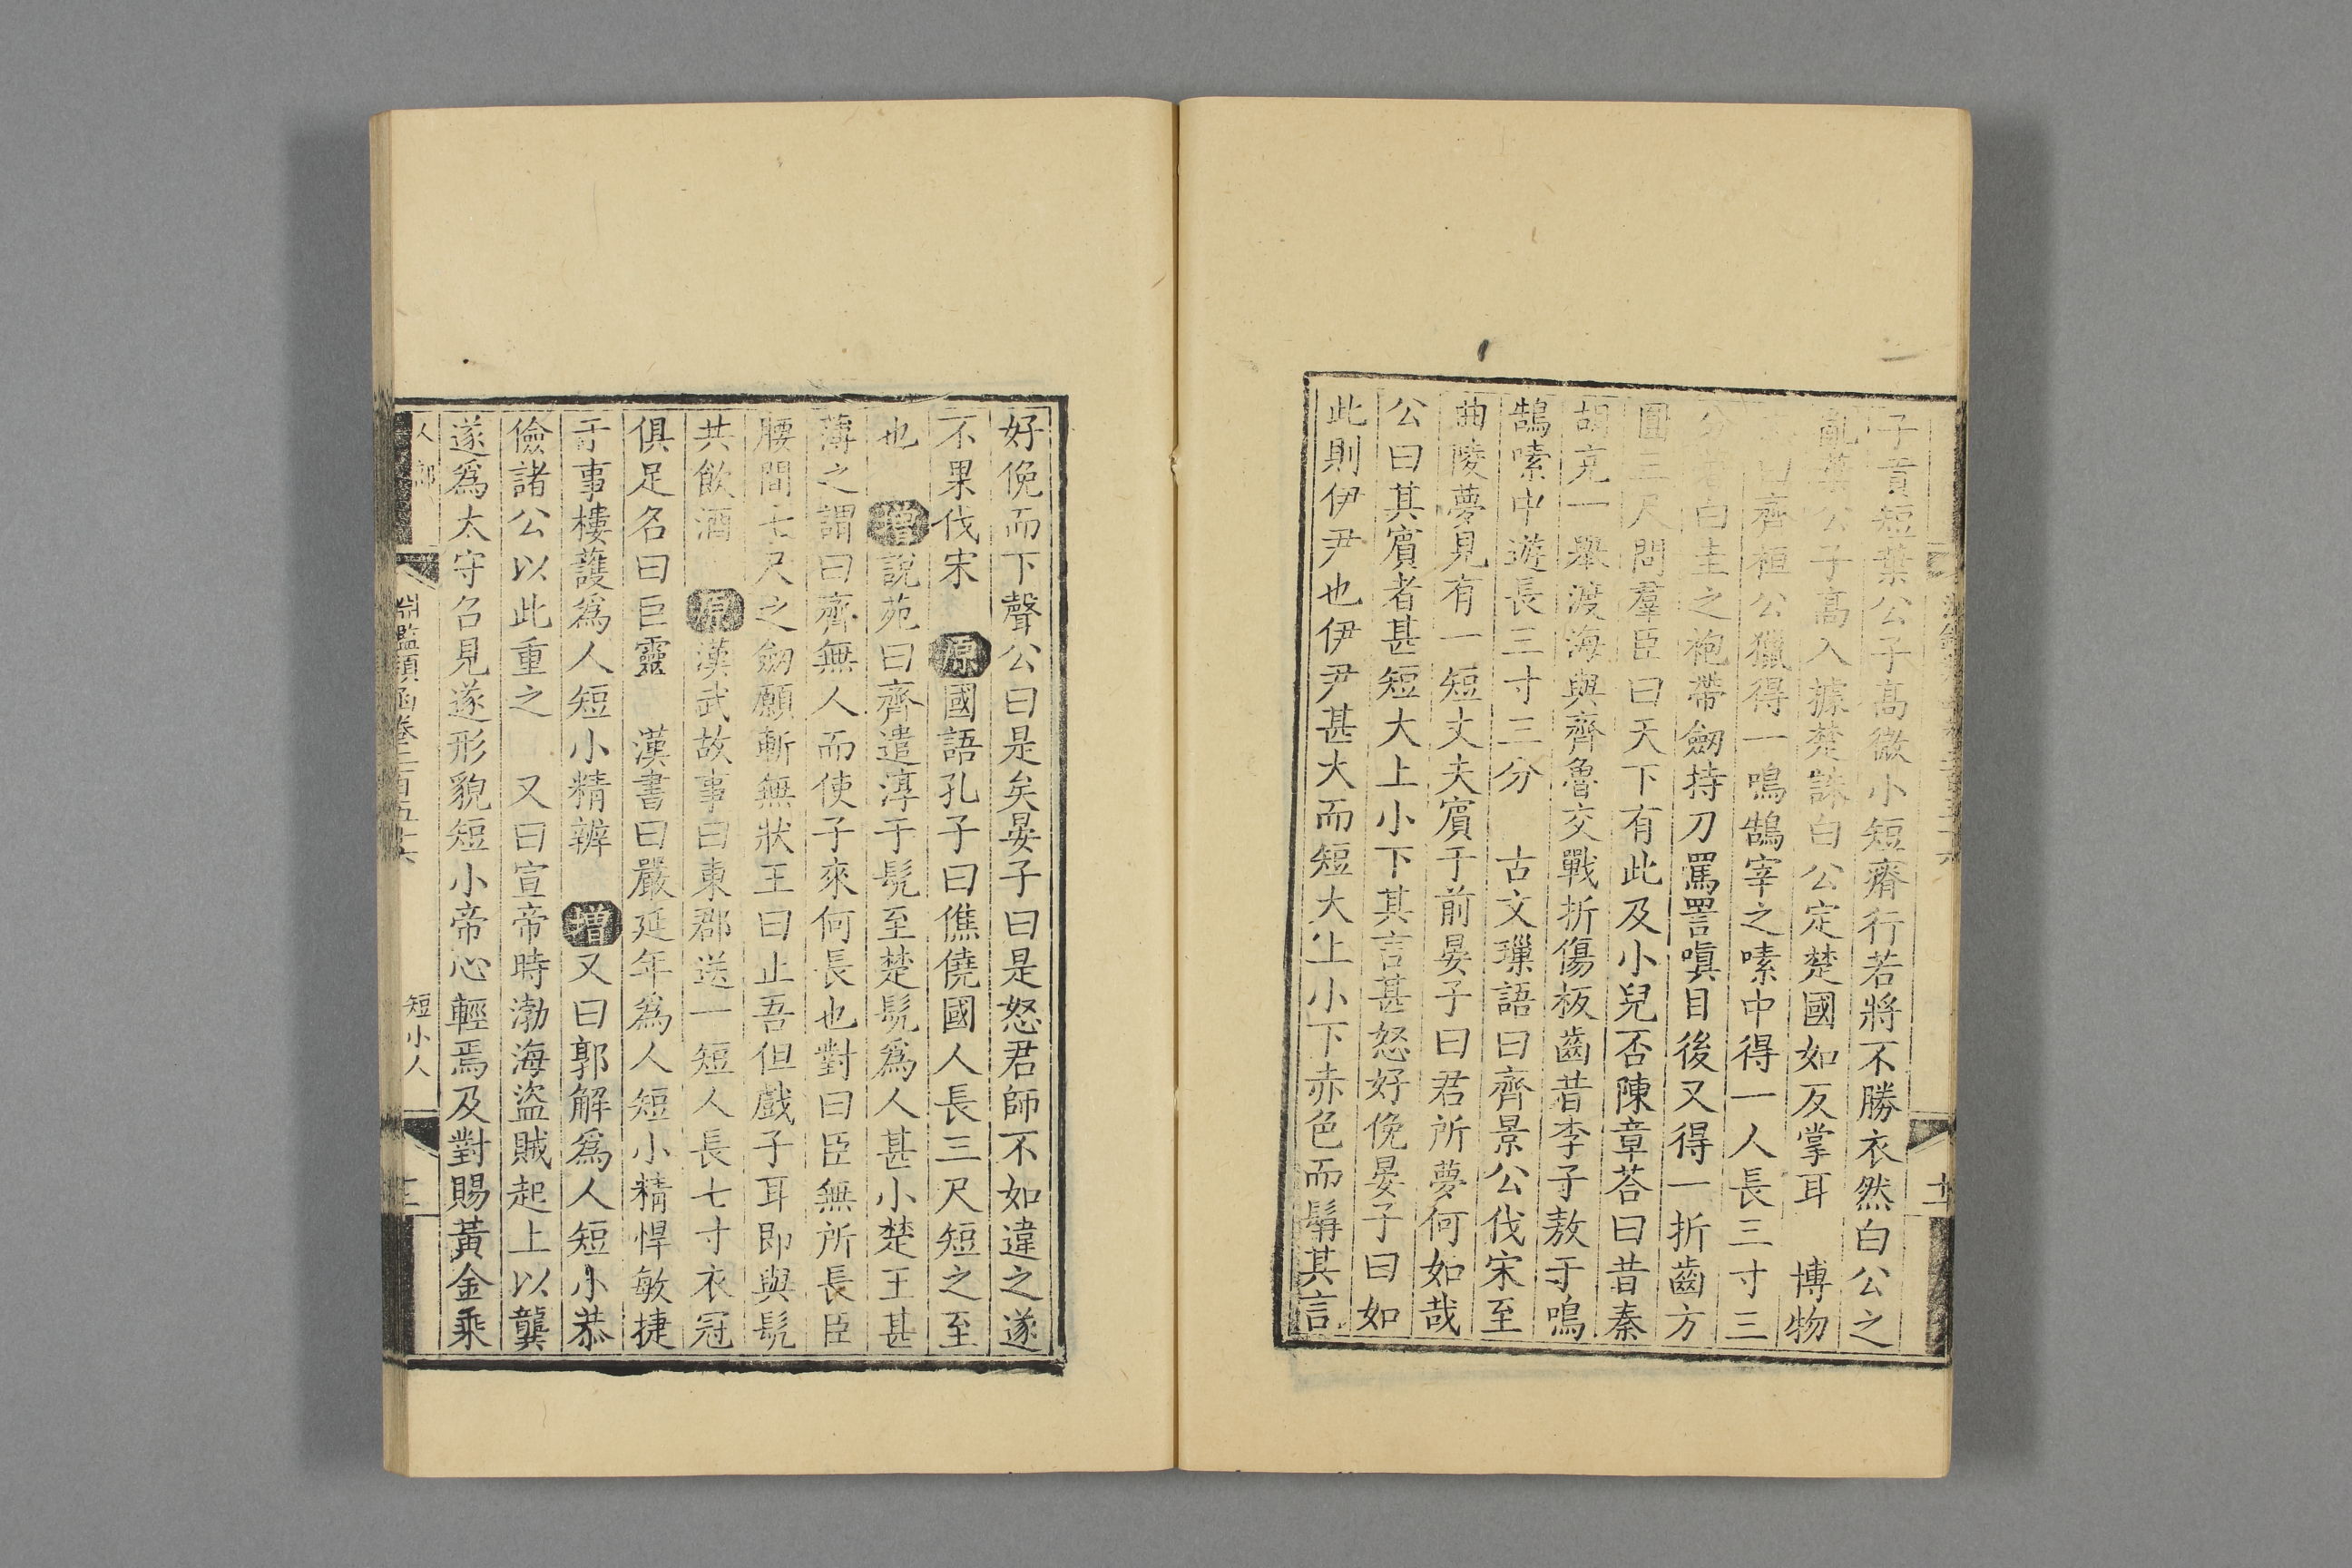 子貢短葉公子高微小短瘠行若將不勝衣然白公之
亂葉公子高入據楚誅白公定楚國如反掌耳 博物
曰齊桓公獵得一鳴鵠宰之嗉中得一人長三寸三
分著白圭之袍帶劒持刀罵詈嗔目後又得一折齒方
圓三尺問羣臣曰天下有此及小兒否陳章荅曰昔秦
胡充一舉渡海與齊魯交戰折傷板齒昔李子敖于鳴
鵠嗉中遊長三寸三分 古文璅語曰齊景公伐宋至
曲陵夢見有一短丈夫賔于前晏子曰君所夢何如哉
公曰其賔者甚短大上小下其言甚怒好俛晏子曰如
此則伊尹也伊尹甚大而短大上小下赤色而髯其言
好俛而下聲公曰是矣晏子曰是怒君師不如違之遂
不果伐宋 原國語孔子曰僬僥國人長三尺短之至
也 增說苑曰齊遣淳于髡至楚髡爲人甚小楚王甚
薄之謂曰齊無人而使子來何長也對曰臣無所長臣
腰間七尺之劒願斬無狀王曰止吾但戲子耳即與髡
共飲酒 原漢武故事曰東郡送一短人長七寸衣冠
俱足名曰巨靈 漢書曰嚴延年爲人短小精悍敏捷
于事樓護爲人短小精辨 增又曰郭解爲人短小恭
儉諸公以此重之 又曰宣帝時渤海盜賊起上以龔
遂爲太守召見遂形貌短小帝心輕焉及對賜黃金乘
人部
淵鑑類函卷二百五十六
短小人